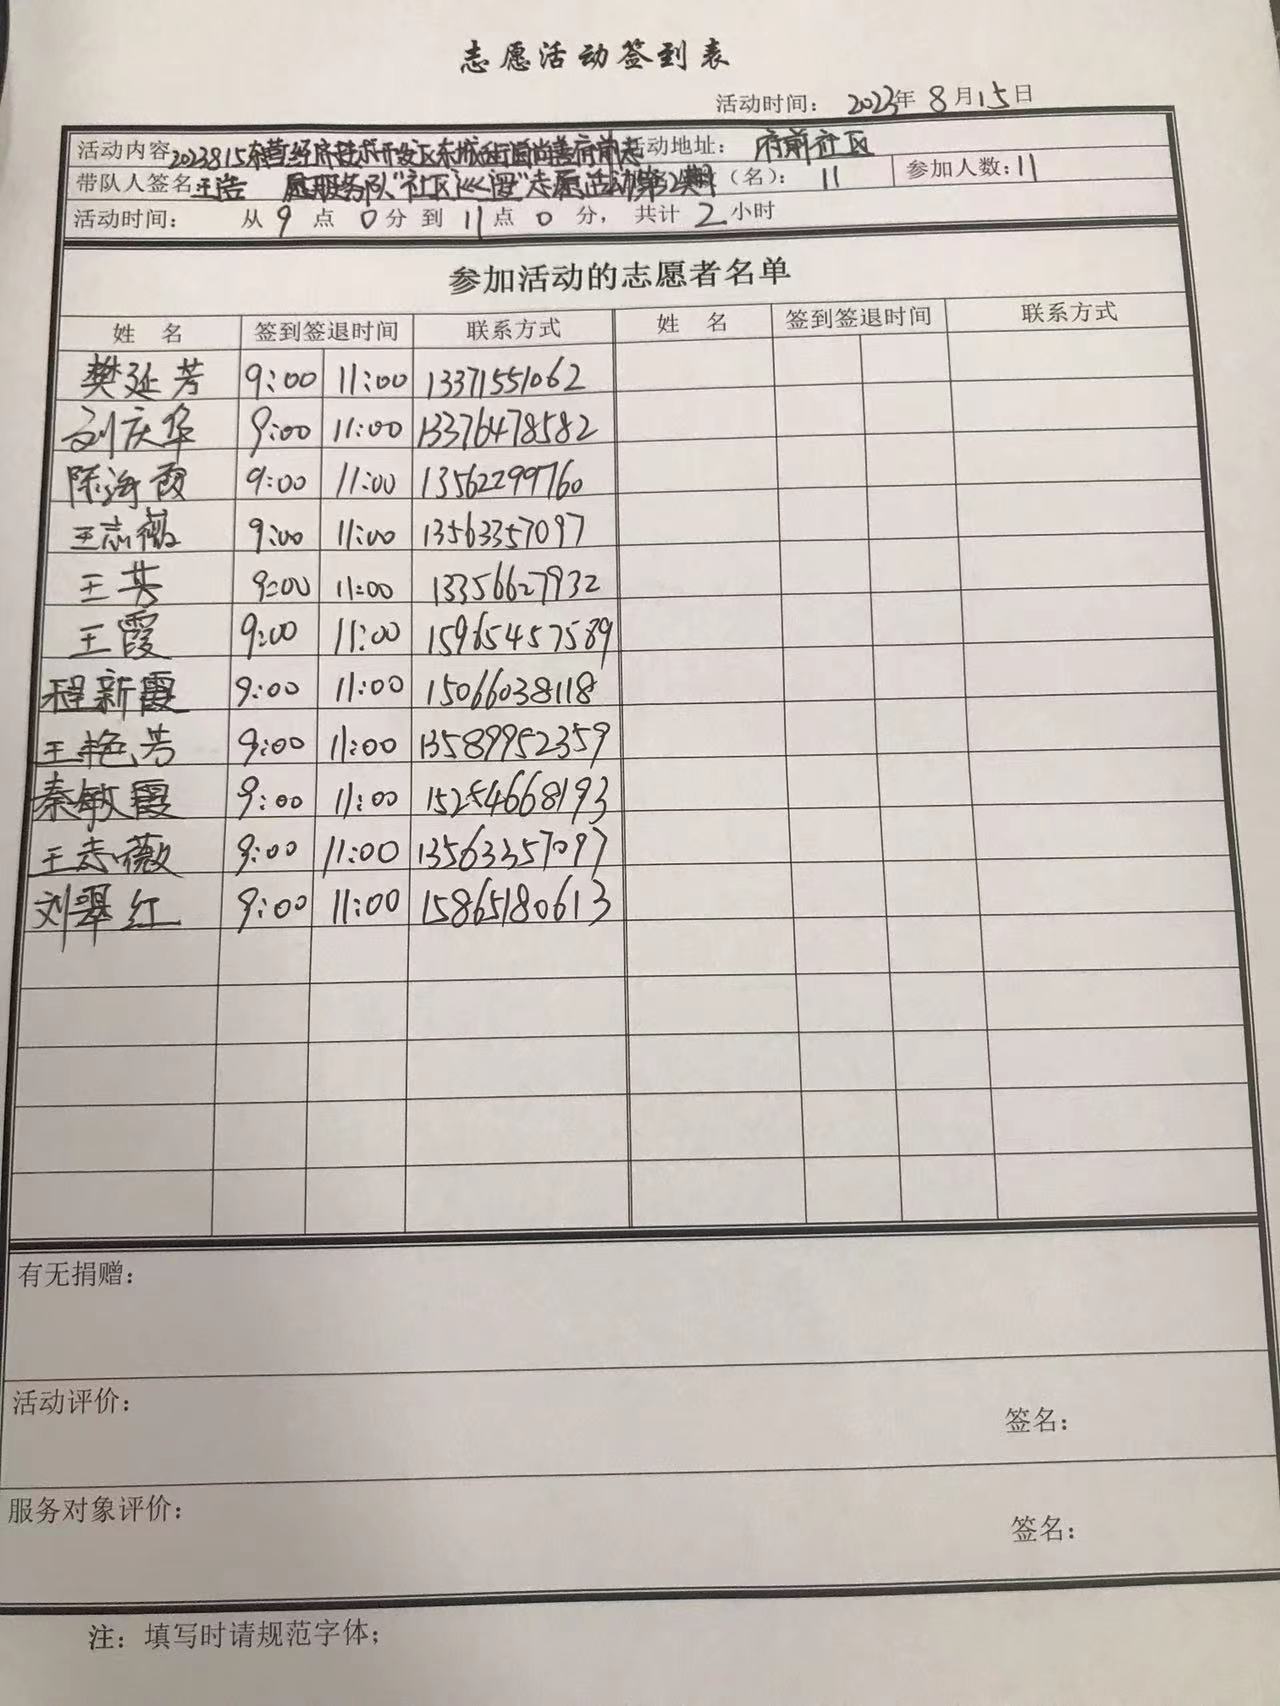 志愿活动签到表
活动时间： 2023年 8月15日
活动内容 2023815东营经济技术开发区东城街道尚善府前志 活动地址： 府前社区
带队人签名 王浩 愿服务队“社区巡逻”志愿活动第2期 （名）： 11 参加人数：11
活动时间： 从 9 点 0 分 到 11 点 0 分， 共计 2 小时
参加活动的志愿者名单
姓 名 签到签退时间 联系方式 姓 名 签到签退时间 联系方式
樊延芳 9:00 11:00 13371551062
刘庆华 9:00 11:00 13376478582
陈海霞 9:00 11:00 13562299760
王志薇 9:00 11:00 13563357097
王芬 9:00 11:00 13356627932
王霞 9:00 11:00 15965457589
程新霞 9:00 11:00 15066038118
王艳芳 9:00 11:00 13589952359
秦敏霞 9:00 11:00 15254668193
王志薇 9:00 11:00 13563357097
刘翠红 9:00 11:00 15865180613
有无捐赠：
活动评价：
签名：
服务对象评价：
签名：
注：填写时请规范字体；